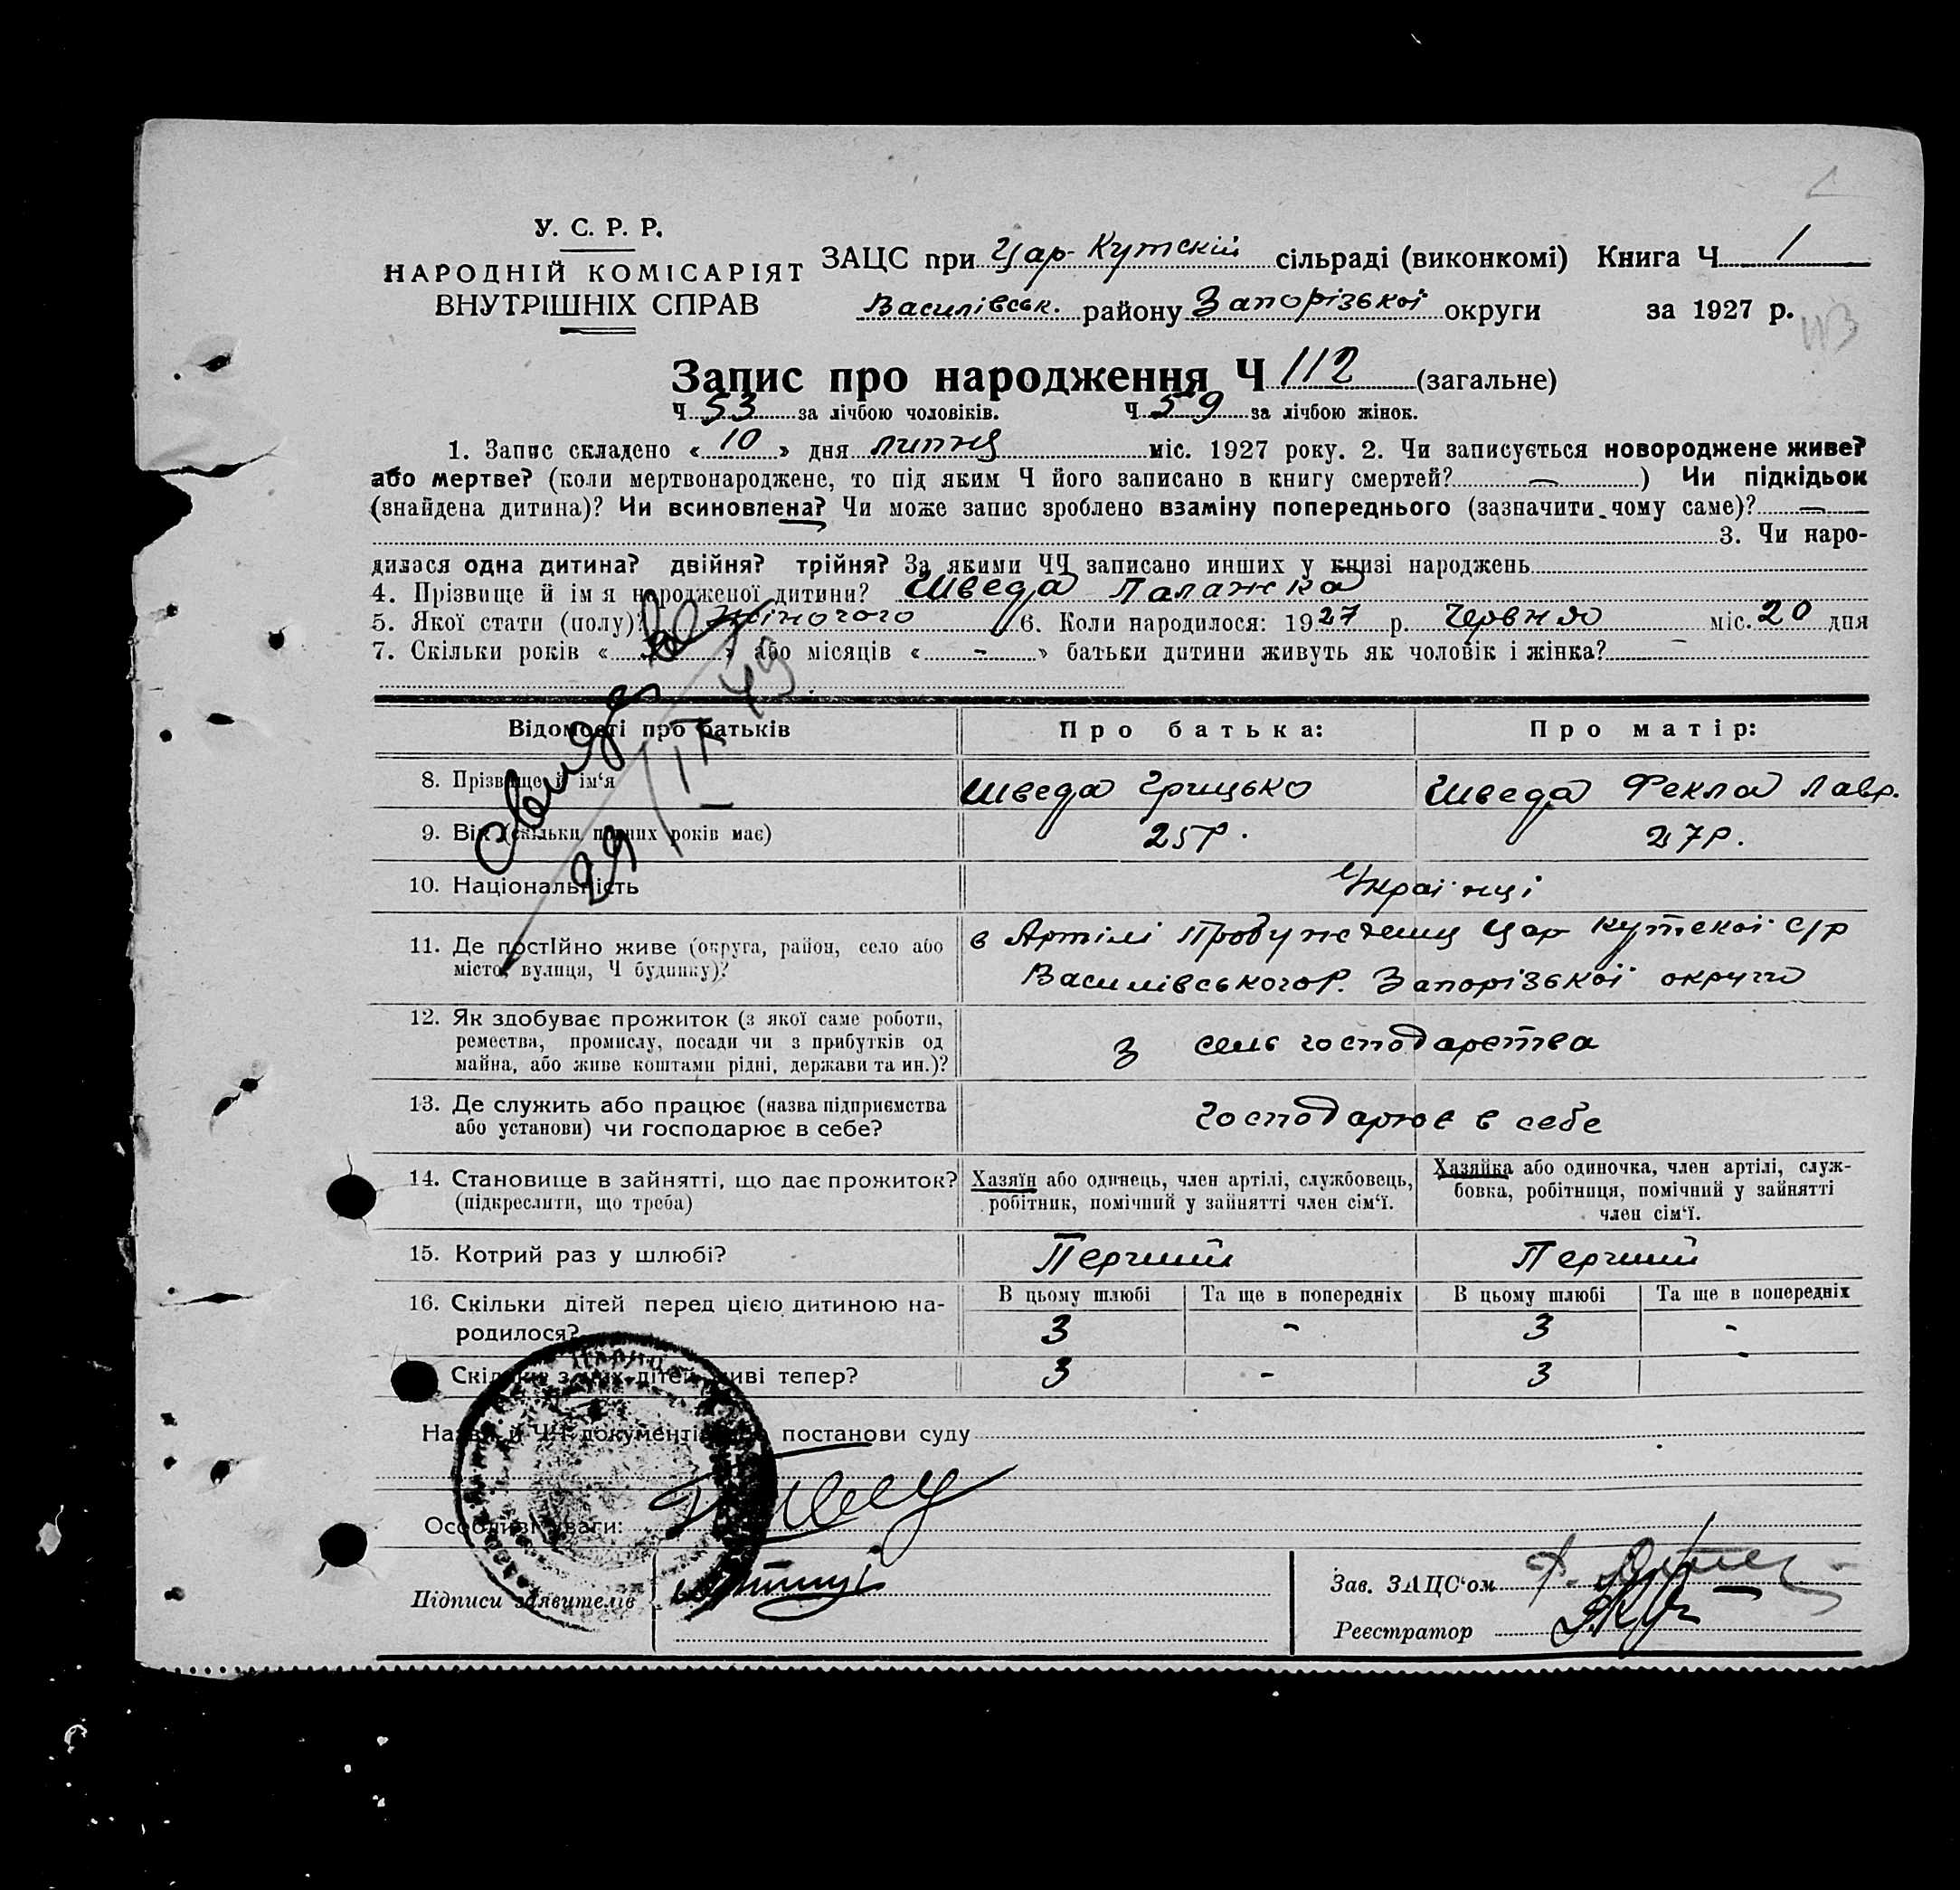 У. С. Р. Р.
НАРОДНІЙ КОМІСАРІЯТ
ВНУТРІШНІХ СПРАВ
ЗАЦС при Цар-Кутскій сільраді (виконкомі) Книга Ч 1
Василівськ. району Запорізької округи за 1927 р.
Запис про народження Ч 112 (загальне)
Ч 53 за лічбою чоловіків. Ч 59 за лічбою жінок.
1. Запис складено « 10 » дня липня міс. 1927 року. 2. Чи записується новороджене живе?
або мертве? (коли мертвонароджене, то під яким Ч його записано в книгу смертей? — ) Чи підкідьок
(знайдена дитина)? Чи всиновлена? Чи може запис зроблено взаміну попереднього (зазначити чому саме)? —
3. Чи наро-
дилася одна дитина? двійня? трійня? За якими ЧЧ записано инших у книзі народжень
4. Прізвище й імя народженої дитини? Шведа Палажка
5. Якої стати (полу)? жіночого 6. Коли народилося: 1927 р. Червня міс. 20 дня
7. Скільки років « » або місяців « - » батьки дитини живуть як чоловік і жінка? -
29/IX 49
Відомості про батьків
Про батька:
Про матір:
8. Прізвище й ім'я
Шведа Грицько
Шведа Фекла Лавр.
9. Вік (скільки повних років має)
25р.
27р.
10. Національність
Українці
11. Де постІйно живе (округа, район, село або
місто, вулиця, Ч будинку)?
в Артілі Пробуждениц Цар Кутской с/р
Василівського Р. Запорізької округи
12. Як здобуває прожиток (з якої саме роботи,
ремества, промислу, посади чи з прибутків од
майна, або живе коштами рідні, держави та ин.)?
З сель господарства
13. Де служить або працює (назва підприємства
або установи) чи господарює в себе?
Господарює в себе
14. Становище в зайнятті, що дає прожиток?
(підкреслити, що треба)
Хазяїн або одинець, член артілі, службовець,
робітник, помічний у зайнятті член сім'ї.
Хазяйка або одиночка, член артілі, служ-
бовка, робітниця, помічний у зайнятті
член сім'ї.
15. Котрий раз у шлюбі?
Перший
Перший
16. Скільки дітей перед цією дитиною на-
родилося?
В цьому шлюбі Та ще в попередніх В цьому шлюбі Та ще в попередніх
3 - 3 -
Скільки з них дітей живі тепер?
3 - 3 -
Назви й ЧЧ документів постанови суду
Особливі уваги:
Підписи заявителів
Зав. ЗАЦС'ом
Реєстратор